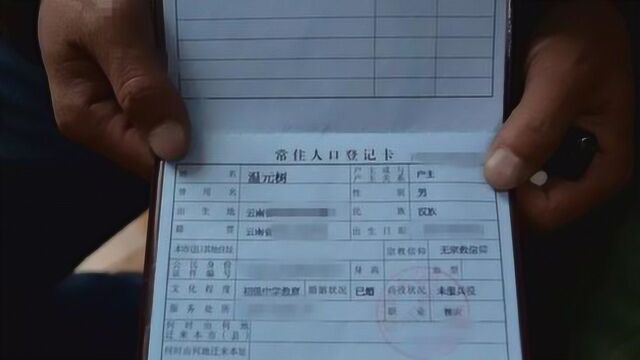 常住人口登记卡
姓名 温元树 户主或与户主关系 户主
曾用名 性别 男
出生地 云南省 民族 汉族
籍贯 云南省 出生日期
本市(县)其他住址 宗教信仰 无宗教信仰
公民身份证件编号 身高 血型
文化程度 初级中学教育 婚姻状况 已婚 兵役状况 未服兵役
服务处所 职业
何时由何地迁来本市(县)
何时由何地迁来本址